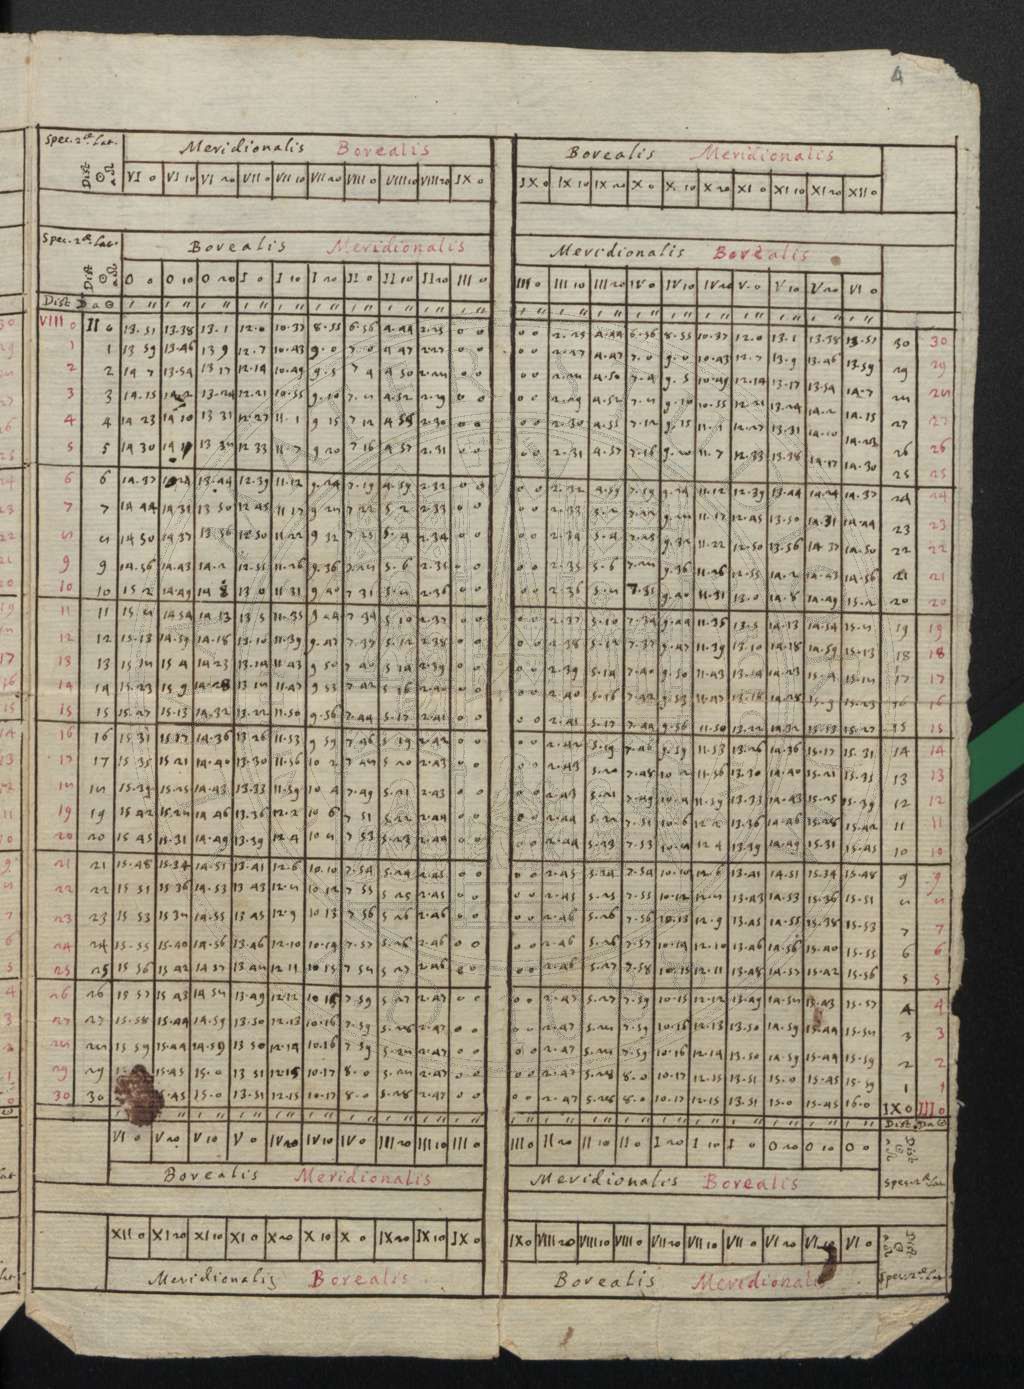 4
Spec. 2æ Lat. Meridionalis Borealis Borealis Meridionalis
Dist ☉ a ☊ VI 0 VI 10 VI 20 VII 0 VII 10 VII 20 VIII 0 VIII 10 VIII 20 IX 0 IX 0 IX 10 IX 20 X 0 X 10 X 20 XI 0 XI 10 XI 20 XII 0
Spec. 2æ Lat. Borealis Meridionalis Meridionalis Borealis
Dist ☉ a ☊ 0 0 0 10 0 20 I 0 I 10 I 20 II 0 II 10 II 20 III 0 III 0 III 10 III 20 IV 0 IV 10 IV 20 V 0 V 10 V 20 VI 0
Dist ☽ a ☉ ' '' ' '' ' '' ' '' ' '' ' '' ' '' ' '' ' '' ' '' ' '' ' '' ' '' ' '' ' '' ' '' ' '' ' '' ' '' ' ''
VIII 0 II 0 13.51 13.38 12.0 10.37 8.55 6.56 4.44 0 0 0 0 4.44 6.56 8.55 10.37 12.0 13.38 13.51 30 30
1 1 13 59 13.46 13 9 12.7 10.43 9.0 7.0 4 47 2.27 0 0 0 0 2.27 4.47 7.0 9.0 10.43 12.7 13.9 13.46 13.59 29 29
2 2 14 7 13.54 13 17 12.14 10.49 9.5 7 4 4 50 2.28 0 0 0 0 2.28 4.50 7.4 9.5 10.49 12.14 13.17 13.54 14.7 28 28
3 3 14.15 13.24 12.21 10.55 9.10 7.8 4.52 2.29 0 0 0 0 2.29 4.52 7.8 9.10 10.55 12.21 13.24 14.2 14.15 27 27
4 4 14 23 14 10 13 31 12.27 11.1 9 15 7 12 4 55 2.30 0 0 0 0 2.30 4.55 7.12 9.15 11.1 12.27 13.31 14.10 14.23 26 26
5 5 14 30 13 38 12 33 11.7 9 20 7 16 4 57 2.31 0 0 0 0 2.31 4.57 7.16 9.20 11.7 12.33 13.38 14.17 14.30 25 25
6 6 14.37 13.44 12.39 11.12 9.24 7.19 4.59 2.32 0 0 0 0 2.32 4.59 7.19 9.24 11.12 12.39 13.44 14.24 14.37 24 24
7 7 14 44 14 31 13 50 12 45 11 17 9 28 7 22 5.2 2.33 0 0 0 0 2.33 5.2 7.22 9.28 11.17 12.45 13.50 14.31 14.44 23 23
8 8 14 50 14 37 13 56 12 50 11 22 9 32 7 25 5.4 2.34 0 0 0 0 2.34 5.4 7.25 9.32 11.22 12.50 13.56 14.37 14.50 22 22
9 9 14.56 14.43 14.2 12.55 11.26 9.36 7.28 5.6 2.35 0 0 0 0 2.35 5.6 7.28 9.36 11.26 12.55 14.2 14.43 14.56 21 21
10 10 15 2 14.49 14 8 13 0 11 31 9 40 7 31 5.8 2.36 0 0 0 0 2.36 5.8 7.31 9.40 11.31 13.0 14.8 14.49 15.2 20 20
11 11 15.8 14 54 14.13 13 5 11.35 9 44 7 34 5 10 2.37 0 0 0 0 2.37 5.10 7.34 9.44 11.35 13.5 14.13 14.54 15.8 19 19
12 12 15.13 14.59 14.18 13.10 11.39 9.47 7.37 5.12 2.38 0 0 0 0 2.38 5.12 7.37 9.47 11.39 13.10 14.18 14.59 15.13 18 18
13 13 15 18 15 4 14.23 13.14 11 43 9 50 7 40 5 14 2.39 0 0 0 0 2.39 5.14 7.40 9.50 11.43 13.14 14.23 15.4 15.18 17 17
14 14 15.23 15 9 14.28 13 18 11.47 9 53 7 42 5 16 2.40 0 0 0 0 2.40 5.16 7.42 9.53 11.47 13.18 14.28 15.9 15.23 16 16
15 15 15.27 15.13 14.32 13.22 11.50 9.56 7.44 5.17 2.41 0 0 0 0 2.41 5.17 7.44 9.56 11.50 13.22 14.32 15.13 15.27 15 15
16 16 15 31 15.17 14.36 13 26 11.53 9 59 7 46 5 19 2.42 0 0 0 0 2.42 5.19 7.46 9.59 11.53 13.26 14.36 15.17 15.31 14 14
17 17 15 35 15 21 14.40 13 30 11.56 10 2 7 48 5 20 2.43 0 0 0 0 2.43 5.20 7.48 10.2 11.56 13.30 14.40 15.21 15.35 13 13
18 18 15.39 15.25 14.43 13.33 11.59 10 4 7.49 5.21 2.43 0 0 0 0 2.43 5.21 7.49 10.4 11.59 13.33 14.43 15.25 15.39 12 12
19 19 15 42 15.28 14 46 13.36 12.2 10 6 7 51 5.22 2.44 0 0 0 0 2.44 5.22 7.51 10.6 12.2 13.36 14.46 15.28 15.42 11 11
20 20 15 45 15.31 14.49 13.39 12.4 10 8 7 53 5.23 2.44 0 0 0 0 2.44 5.23 7.53 10.8 12 4 13.39 14.49 15.31 15.45 10 10
21 21 15.48 15.34 14.51 13.41 12.6 10.10 7.54 5.24 2.45 0 0 0 0 2.45 5.24 7.54 10.10 12 6 13.41 14.51 15.34 15.48 9 9
22 22 15 51 15 36 14.53 13 43 12.8 10 12 7 55 5 25 2 45 0 0 0 0 2.45 5.25 7.55 10.12 12.8 13.43 14.53 15.36 15.51 8 8
23 23 15 53 15 38 14.55 13 45 12.9 10 13 7 56 5 26 2 46 0 0 0 0 2.46 5.26 7.56 12.9 13.45 14.55 15.38 15.53 7 7
24 24 15.55 15.40 14.56 13.46 12.10 10.14 7.57 5.26 2.46 0 0 0 0 2.46 5.26 7.57 10.14 12.10 13.46 14.56 15.40 15.55 6 6
25 25 15 56 15 42 14 57 13 48 12 11 10 15 7 58 5 27 2.46 0 0 0 0 2.46 5.27 7.58 10.15 12.11 13.48 14.57 15.42 15.56 5 5
26 26 15 57 15 43 14 58 13.49 12.12 7 59 5 27 2.47 0 0 0 0 2.47 5.27 7.59 10.15 12.12 13.49 14.58 15.43 15.57 4 4
27 27 15.58 15.44 14.59 13.50 12.13 10.16 7.59 5.28 2.47 0 0 0 0 2.47 5.28 7.59 10.16 12.13 13.50 14.59 15.44 15.58 3 3
28 28 15 59 15.44 14.59 13 50 12.14 10.16 7 59 5.28 2.47 0 0 0 0 2.47 5.28 7.59 10.16 12.14 13.50 14.59 15.44 15.59 2 2
29 29 15.45 15.0 13 51 12.15 10.17 8.0 5.28 2.47 0 0 0 0 2.47 5.28 8.0 10.17 12.15 13.51 15.0 15.45 15.59 1 1
30 30 15.0 13.51 12.15 10.17 8.0 5.28 2.47 0 0 0 0 2.47 5.28 8.0 10.17 12.15 13.51 15.0 15.45 16.0 IX 0 III 0
' '' ' '' ' '' ' '' ' '' ' '' ' '' ' '' ' '' ' '' ' '' ' '' ' '' ' '' ' '' ' '' ' '' ' '' Dist. ☽ a ☉
VI 0 V 20 V 10 V 0 IV 20 IV 10 IV 0 III 20 III 10 III 0 III 0 II 20 II 10 II 0 I 20 I 10 I 0 0 20 0 10 0 0 Dist ☉ a ☊
Borealis Meridionalis Meridionalis Borealis Spec. 2æ Lat
XII 0 XI 20 XI 10 XI 0 X 20 X 10 X 0 IX 20 IX 10 IX 0 IX 0 VIII 20 VIII 10 VIII 0 VII 20 VII 10 VII 0 VI 20 VI 10 VI 0 Dist ☉ a ☊
Meridionalis Borealis Borealis Meridionalis Spec. 2æ Lat